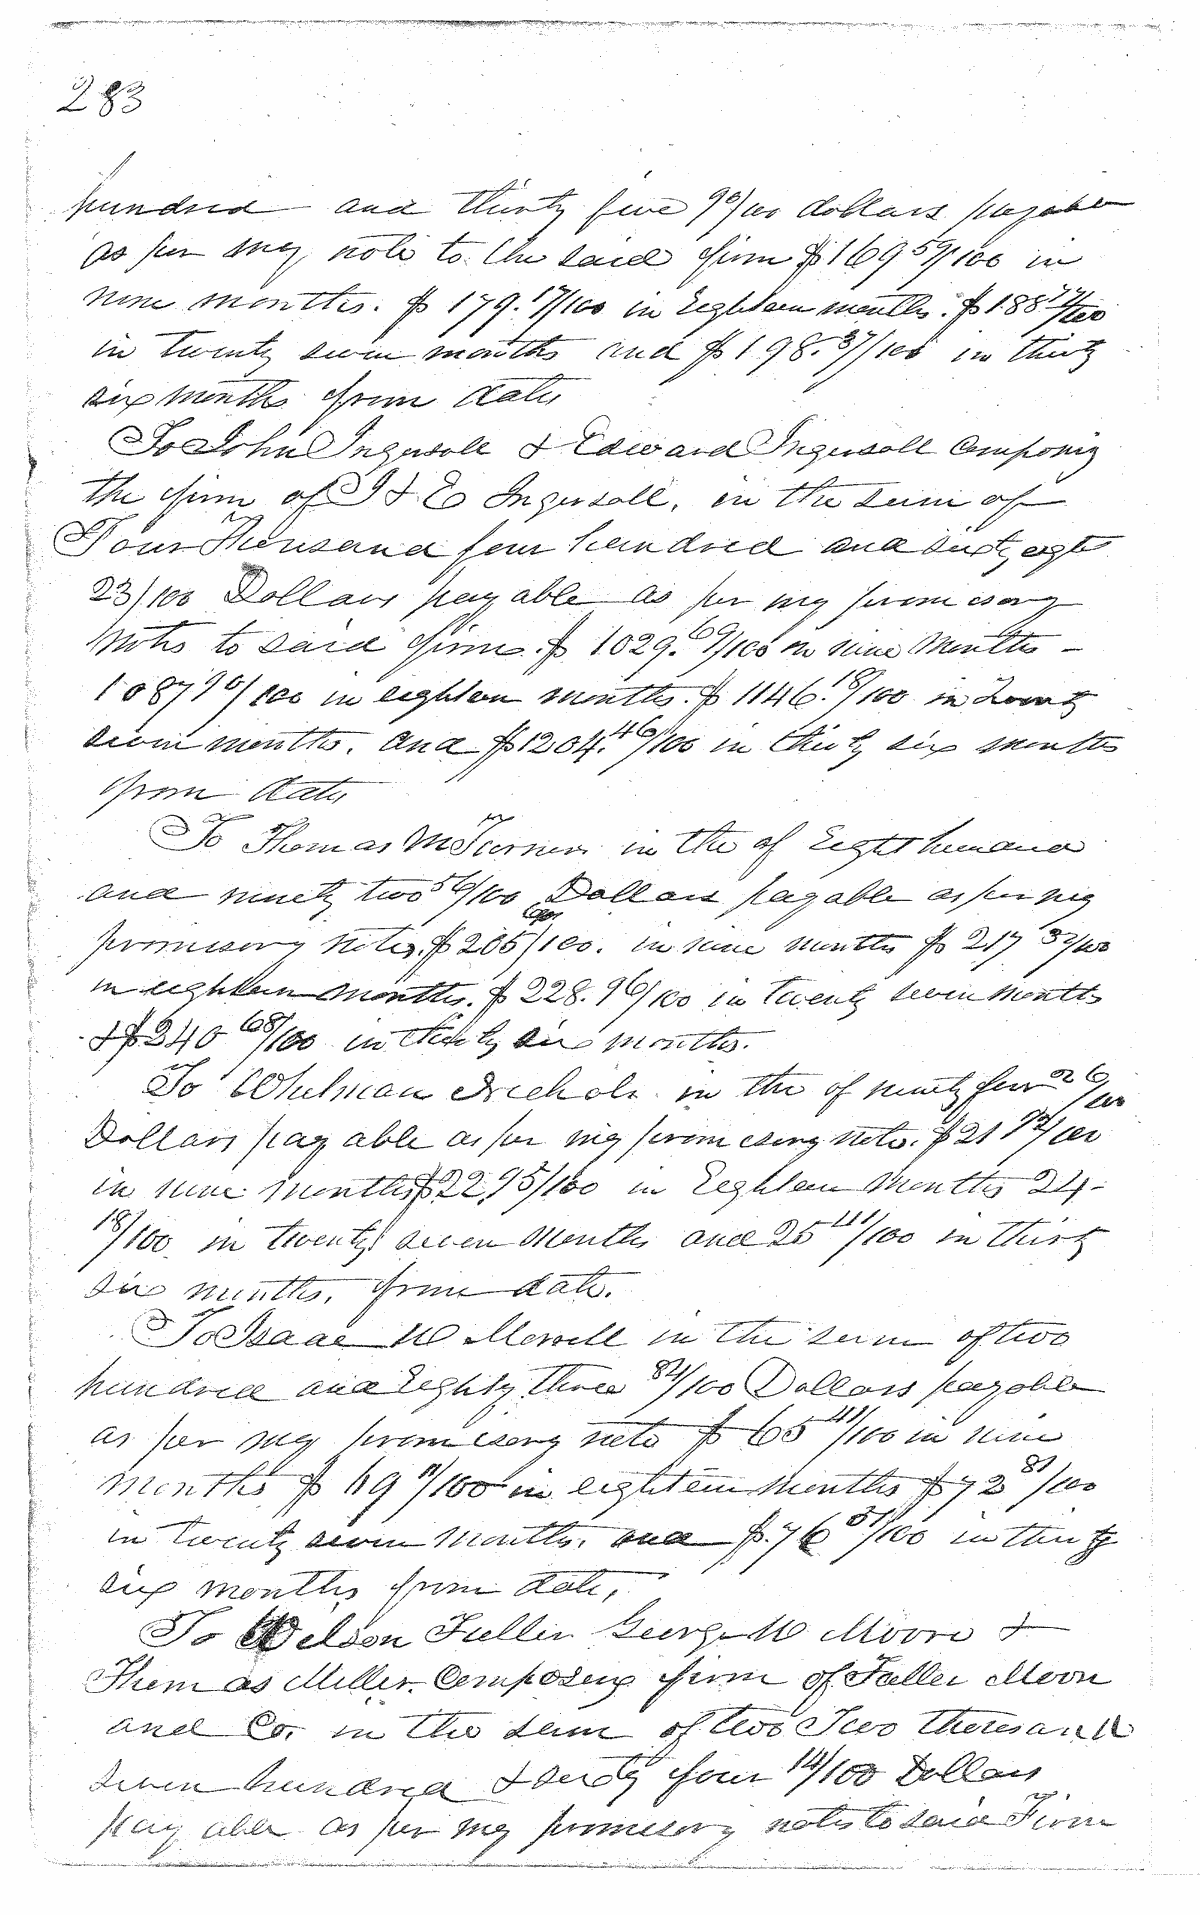 283
hundred and thirty five 90/100 dollars payable
as per my note to the said firm $169 59/100 in
nine months. $179. 17/100 in Eighteen months. $188 77/100
in twenty seven months and $198. 37/100 in thirty
six months from date
To John Ingersoll & Edward Ingersoll Composing
the firm of J & E Ingersoll, in the sum of
Four Thousand four hundred and sixty eght
23/100 Dollars payable as per my promissory
notes to said firm. $1029. 69/100 in nine Months -
1087 90/100 in eighteen months. $1146. 18/100 in Twenty
seven months. and $1204. 46/100 in thirty six months
from date
To Thomas McTurner in the of Eight hundred
and ninety two 56/100 Dollars payable as per my
promissory notes. $205 60/100. in nine months $217 32/100
in eighteen months. $228. 96/100 in twenty seven months
& $240 68/100 in thirty six months.
To Whelman Nichols in the of ninety four 26/100
Dollars payable as per my promissory note. $21 72/100
in nine months $22 95/100 in Eighteen Months 24-
18/100 in twenty seven Months and 25 41/100 in thirty
six months. from date.
To Isaac W Merrell in the sum of two
hundred and Eighty three 84/100 Dollars payable
as per my promissory note $65 41/100 in nine
months $69 11/100 in eighteen months $72 81/100
in twenty seven months. and $76 51/100 in thirty
six months from date.
To Wilson Fuller George W Moore &
Thomas Miller Composing firm of Fuller Moore
and Co. in the sum of two Two thousand
seven hundred & sixty four 14/100 Dollars
payable as per my promissory notes to said Firm